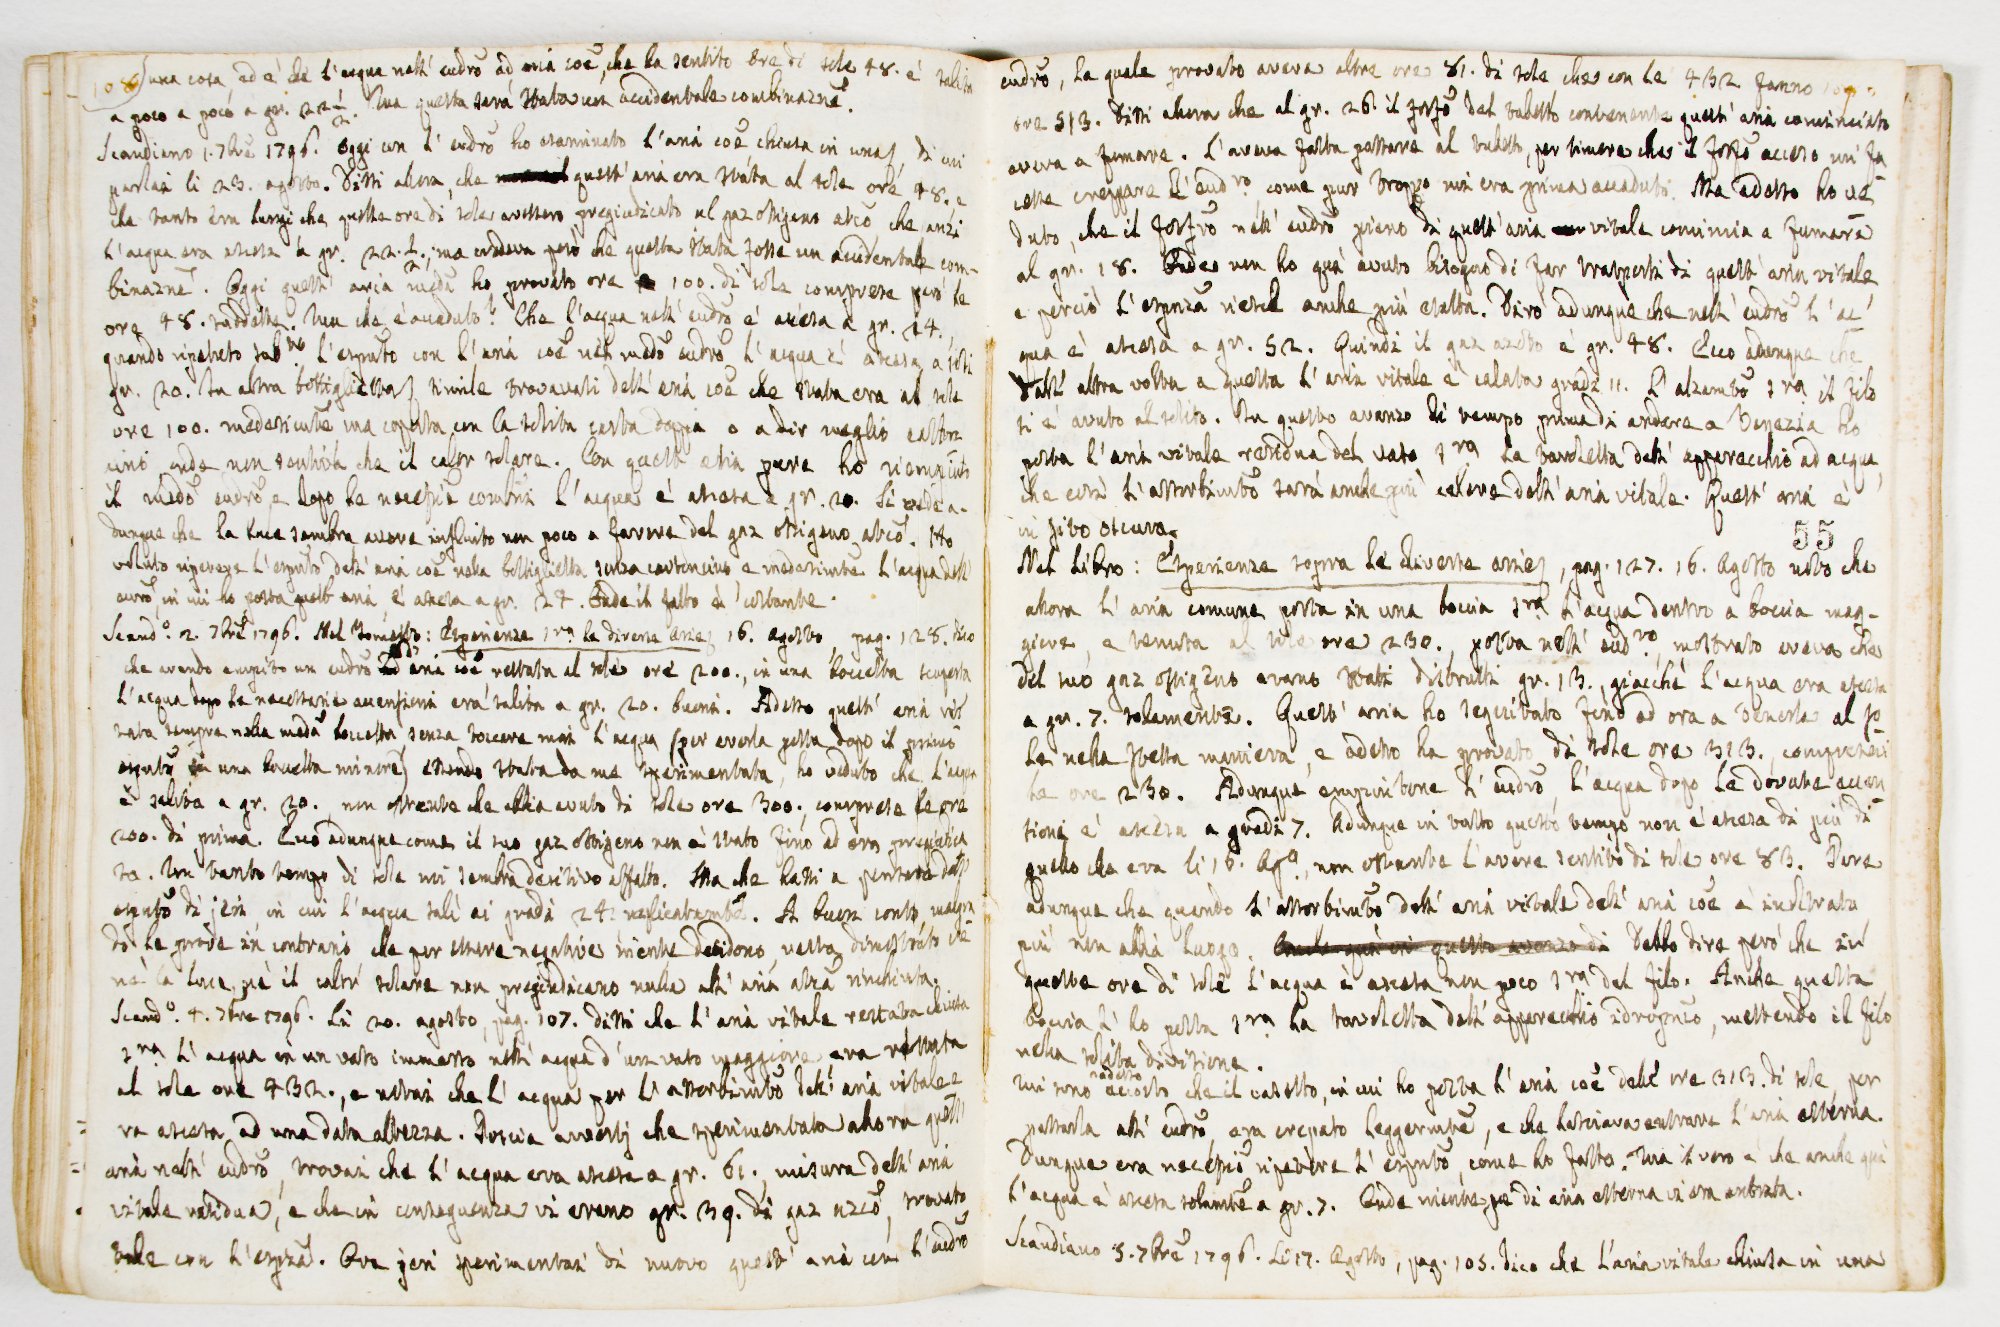 108
una cosa, ed è che l'acqua nell' eudrõ ad aria coẽ, che ha sentito ore di sole 48. è salita
a poco a poco a gr. 22 1/2. Ma questa sarà stata un accidentale combinaznẽ.
Scandiano 1. 7brẽ 1796. Oggi con l' eudrõ ho esaminato l'aria coẽ chiusa in una, di cui
parlai li 23. agosto. Dissi allora che quest' aria era stata al sole ore 48. e
che tanto era lungi che queste ore di sole avessero pregiudicato al gaz ossigeno atcõ che anzi
l'acqua era ascesa a gr. 22. 1/2; ma credeva però che questa stata fosse un accidentale com-
binaznẽ. Oggi quest' aria medã ha provato ore 100. di sole comprese però le
ore 48. suddette. Ma che è accaduto? Che l'acqua nell' eudrõ è ascesa a gr. 24.,
quando ripetuto l'esprtõ con l'aria coẽ nel medõ eudrõ l'acqua è ascesa a soli
gr. 20. In altra bottiglietta simile trovavasi dell' aria coẽ che stata era al sole
ore 100. medesimtẽ ma coperta con la solita carta doppia o a dir meglio
onde non sentiva che il calor solare. Con quest' aria pure ho riempiuto
il medõ eudrõ, e dopo le necessrie combni l'acqua è ascesa a gr. 20. Si vede a-
dunque che la luce sembra avere influito non poco a favore del gaz ossigeno atcõ. Ho
voluto ripetere l'esprtõ dell' aria coẽ nella bottiglietta senza cartoncino, e medesimtẽ l'acqua nell'
eudrõ, in cui ho posta quest' aria, è ascesa a gr. 24. Onde il fatto è costante.
Scandº. 2. 7brẽ 1796. Nel Tometto: Esperienze sopra le diverse Arie, 16. Agosto, pag. 128. dico
che avendo empito un eudrõ ad aria coẽ restata al sole ore 200., in una boccetta scoperta
l'acqua dopo le necessarie accensioni era salita a gr. 20. buoni. Adesso quest' aria res-
tata sempre nella medã boccetta senza toccare mai l'acqua (per averla posta dopo il primo
esprtõ in una boccetta minore) essendo stata da me sperimentata, ho veduto che l'acqua
è salita a gr. 20. non ostante che abbia avuto di sole ore 300., comprese le ore
200. di prima. Ecco adunque come il suo gaz ossigeno non è stato fino ad ora pregiudica
to. Un tanto tempo di sole mi sembra decisivo affatto. Ma che hassi a pensare dell'
esprtõ di jeri, in cui l'acqua salì ai gradi 24. A buon conto, malgra
do le prove in contrario che per essere negative niente decidono, resta dimostrato che
nè la luce, nè il calor solare non pregiudicano nulla all' aria atcã rinchiusa.
Scandº. 4. 7bre 1796. Li 20. agosto, pag. 107. dissi che l'aria vitale restata chiusa
sopra l'acqua in un vaso immerso nell' acqua d'un vaso maggiore era restata
al sole ore 432., e notai che l'acqua per l'assorbimtõ dell' aria vitale e
ra ascesa ad una data altezza. Poscia avvertij che sperimentata allora quest'
aria nell' eudrõ, trovai che l'acqua era ascesa a gr. 61., misura dell' aria
vitale residua, e che in conseguenza vi erano gr. 39. di gaz azcõ, trovato
tale con l'espnzã. Ora jeri sperimentai di nuovo quest' aria con l'eudrõ
eudrõ, la quale provato aveva altre ore 81. di sole, che con le 432 fanno
ore 513. Dissi allora che al gr. 26. il fosfõ del tubetto contenente quest' aria cominciato
aveva a fumare. L'aveva fatta passare al tubetto, per timore che il fosfõ acceso mi fa
cesse creppare l'eudro, come pur troppo mi era prima accaduto. Ma adesso ho ve-
duto, che il fosfrõ nell' eudrõ pieno di quest' aria vitale comincia a fumare
al gr. 18. Onde non ho quì avuto bisogno di far trasporti di quest' aria vitale
e perciò l'espnzã riesce anche più esatta. Dirò adunque che nell' eudrõ l'ac-
qua è ascesa a gr. 52. Quindi il gaz azoto è gr. 48. Ecco adunque che
dall' altra volta a questa l'aria vitale è calata gradi 11. L'alzamtõ sopra il filo
si è avuto al solito. In questo avanzo di tempo prima di andare a Venezia ho
posta l'aria vitale residua del vaso sopra la tavoletta dell' apparecchio ad acqua,
che così l'assorbimtõ sarà anche più celere dell' aria vitale. Quest' aria è
in sito oscuro.
55
Nel Libro: Esperienze sopra le diverse arie, pag. 127. 16. Agosto noto che
allora l'aria comune posta in una boccia sopra l'acqua dentro a boccia mag-
giore, e tenuta al sole ore 230., posta nell' eudro, mostrato aveva che
del suo gaz ossigeno erano stati distrutti gr. 13., giacchè l'acqua era ascesa
a gr. 7. solamente. Quest' aria ho seguitato fino ad ora a tenerla al so
le nella stessa maniera, e adesso ha provato di sole ore 313., comprese
le ore 230. Adunque empiutone l'eudrõ, l'acqua dopo le dovute accen
sioni è ascesa a gradi 7. Adunque in tutto questo tempo non è ascesa di più di
quello che era li 16. Agº., non ostante l'avere sentito di sole ore 83. Pare
adunque che quando l'assorbimtõ dell' aria vitale dell' aria coẽ è inoltrato
più non abbia luogo. Debbo dire però che in
queste ore di sole l'acqua è ascesa non poco sopra del filo. Anche questa
boccia l'ho posta sopra la tavoletta dell' apparecchio idropnico, mettendo il filo
nella solita divisione.
Mi sono adesso accorto che il vasetto, in cui ho posta l'aria coẽ delle ore 313. di sole per
passarla all' eudrõ, era crepato leggermtẽ, e che lasciava entrare l'aria esterna.
Dunque era necessõ ripetere l'esprtõ, come ho fatto. Ma il vero è che anche quì
l'acqua è ascesa solamtẽ a gr. 7. Onde niente di aria esterna vi era entrata.
Scandiano 5. 7brẽ 1796. Li 17. Agosto, pag. 105. dico che l'aria vitale chiusa in una